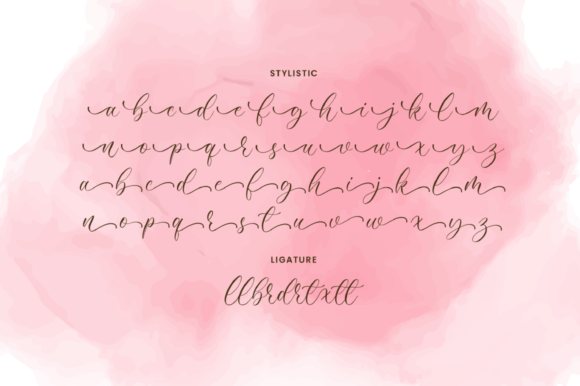 STYLISTIC
a b c d e f g h i j k l m
n o p q r s t u v w x y z
a b c d e f g h i j k l m
n o p q r s t u v w x y z
LIGATURE
llbrdrtxtt